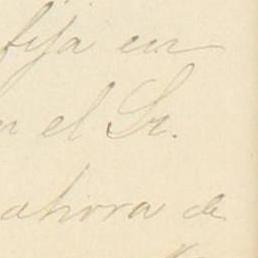 fija en
el Sr.
ahora de